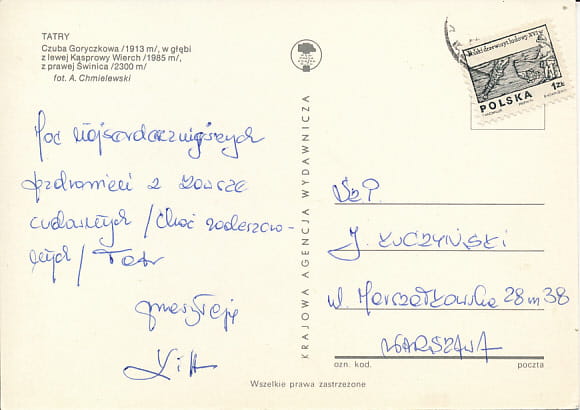 TATRY
Czuba Goryczkowa /1913 m/, w głębi
z lewej Kasprowy Wierch /1985 m/,
z prawej Świnica /2300 m/
fot. A. Chmielewski
Moc najserdeczniejszych
pozdrowień z zawsze
cudownych /choć zadeszczo-
nych/ Tatr
przesyłają
KRAJOWA AGENCJA WYDAWNICZA
Polski drzeworyt ludowy XVI w.
POLSKA
1 ZŁ
Sz. P.
J. ŁUCZYŃSKI
ul. Marszałkowska 28 m 38
WARSZAWA
ozn. kod.
poczta
Wszelkie prawa zastrzeżone